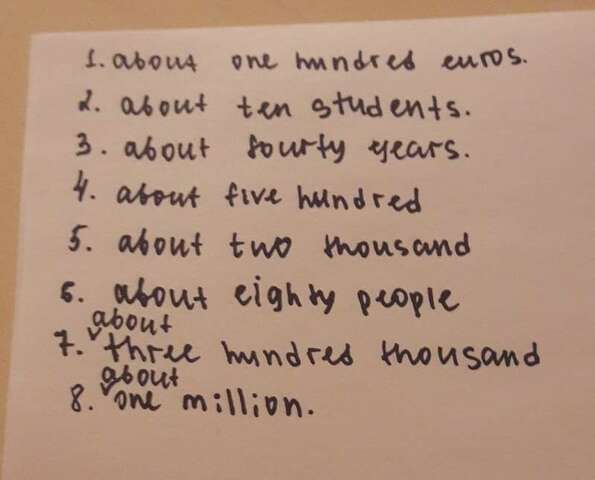 1. about one hundred euros.
2. about ten students.
3. about fourty years.
4. about five hundred
5. about two thousand
6. about eighty people
7. about three hundred thousand
8. about one million.